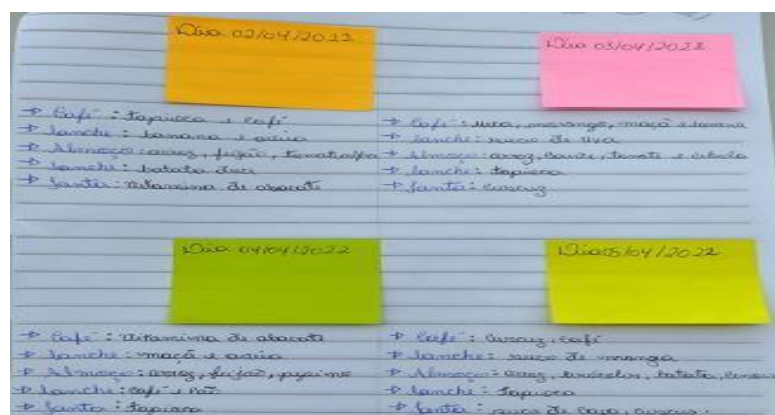 Dia 02/04/2022
→ Café: tapioca e café
→ lanche: banana e aveia
→ Almoço: arroz, feijão,
→ lanche: batata doce
→ Janta: vitamina de abacate
Dia 03/04/2022
→ Café: uva, morango, maçã e banana
→ lanche: suco de uva
→ Almoço: arroz, carne, tomate e cebola
→ lanche: tapioca
→ Janta: cuscuz
Dia 04/04/2022
→ Café: vitamina de abacate
→ lanche: maçã e aveia
→ Almoço: arroz, feijão,
→ lanche: café e pão
→ Janta: tapioca
Dia 05/04/2022
→ Café: cuscuz, café
→ lanche: suco de manga
→ Almoço: arroz, brócolis, batata,
→ lanche: tapioca
→ Janta: suco de caja, cuscuz